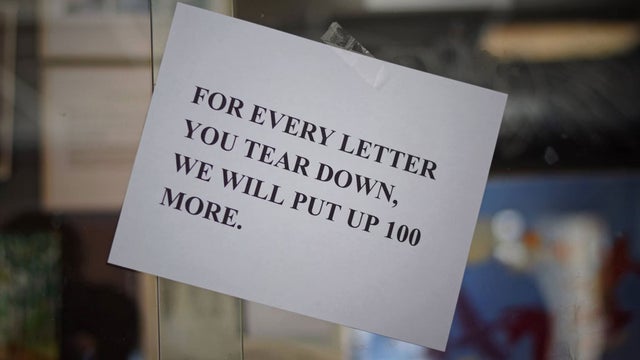 FOR EVERY LETTER
YOU TEAR DOWN,
WE WILL PUT UP 100
MORE.